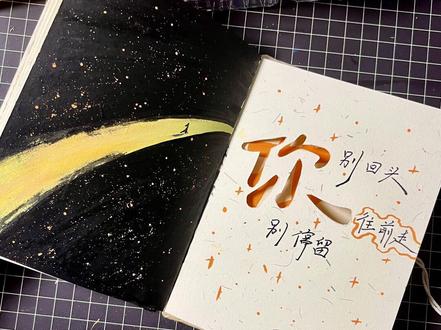 别回头
往前走
别停留